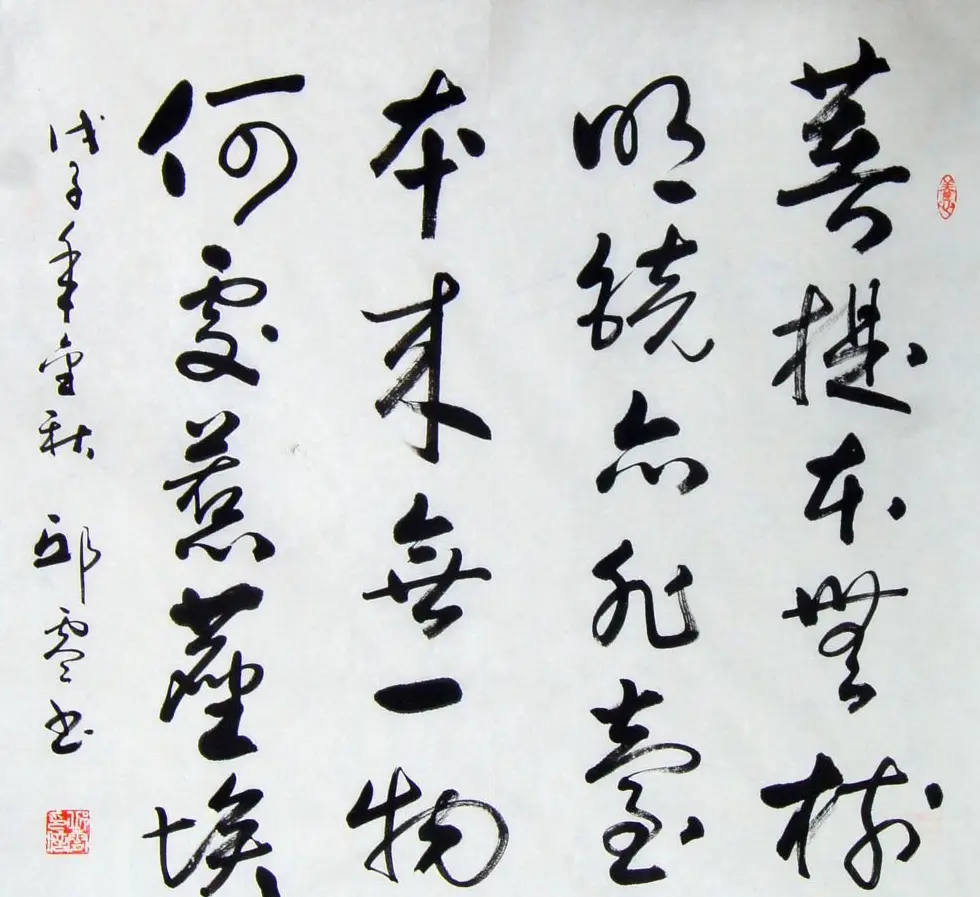 菩提本無樹
明鏡亦非臺
本来無一物
何處惹塵埃
戊子年金秋 邱 书